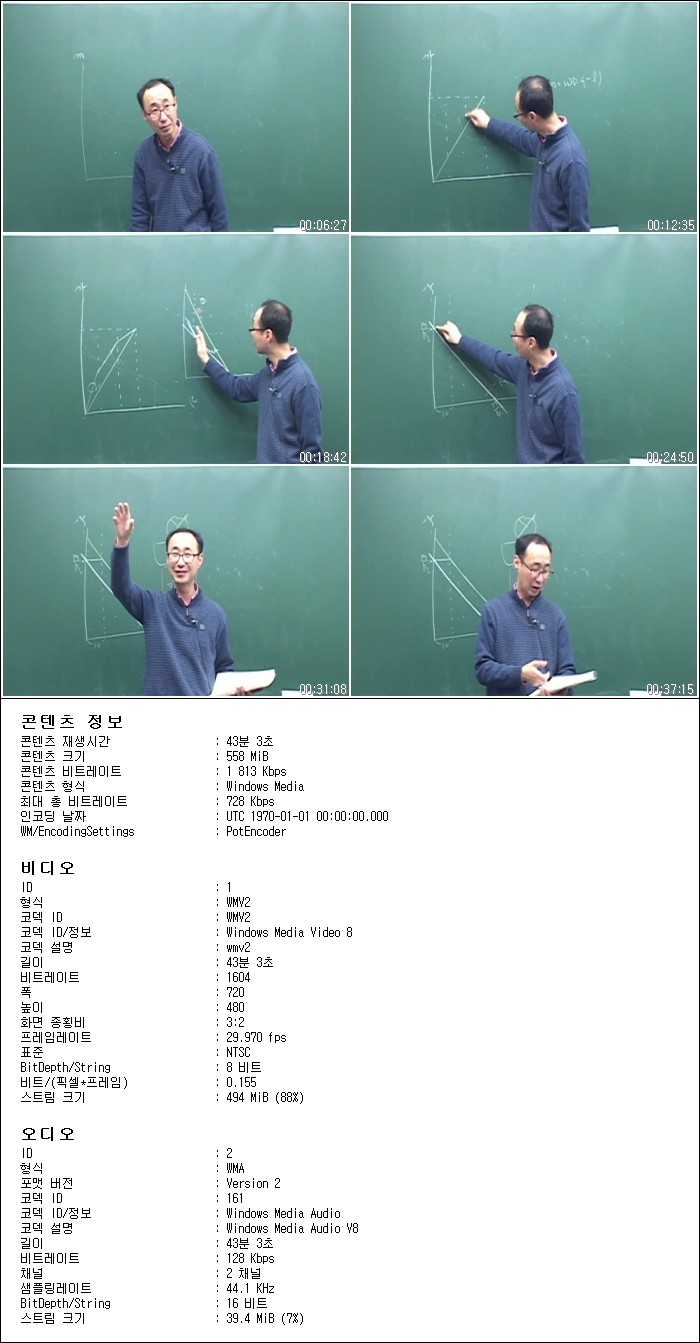 00:06:27
00:12:35
00:18:42
00:24:50
00:31:08
00:37:15
콘텐츠 정보
콘텐츠 재생시간 : 43분 3초
콘텐츠 크기 : 558 MiB
콘텐츠 비트레이트 : 1 813 Kbps
콘텐츠 형식 : Windows Media
최대 총 비트레이트 : 728 Kbps
인코딩 날짜 : UTC 1970-01-01 00:00:00.000
WM/EncodingSettings : PotEncoder
비디오
ID : 1
형식 : WMV2
코덱 ID : WMV2
코덱 ID/정보 : Windows Media Video 8
코덱 설명 : wmv2
길이 : 43분 3초
비트레이트 : 1604
폭 : 720
높이 : 480
화면 종횡비 : 3:2
프레임레이트 : 29.970 fps
표준 : NTSC
BitDepth/String : 8 비트
비트/(픽셀*프레임) : 0.155
스트림 크기 : 494 MiB (88%)
오디오
ID : 2
형식 : WMA
포맷 버전 : Version 2
코덱 ID : 161
코덱 ID/정보 : Windows Media Audio
코덱 설명 : Windows Media Audio V8
길이 : 43분 3초
비트레이트 : 128 Kbps
채널 : 2 채널
샘플링레이트 : 44.1 KHz
BitDepth/String : 16 비트
스트림 크기 : 39.4 MiB (7%)